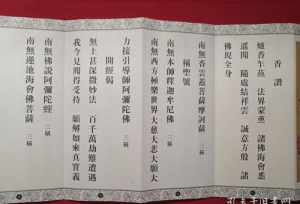 香讚
爐香乍爇 法界蒙熏 諸佛海會悉
遙聞 隨處結祥雲 誠意方殷 諸
佛現全身
南無香雲蓋菩薩摩訶薩 三稱
稱聖號
南無本師釋迦牟尼佛 三稱
南無西方極樂世界大慈大悲大願大
力接引導師阿彌陀佛 三稱
開經偈
無上甚深微妙法 百千萬劫難遭遇
我今見聞得受持 願解如來真實義
南無佛說阿彌陀經 三稱
南無蓮池海會佛菩薩 三稱